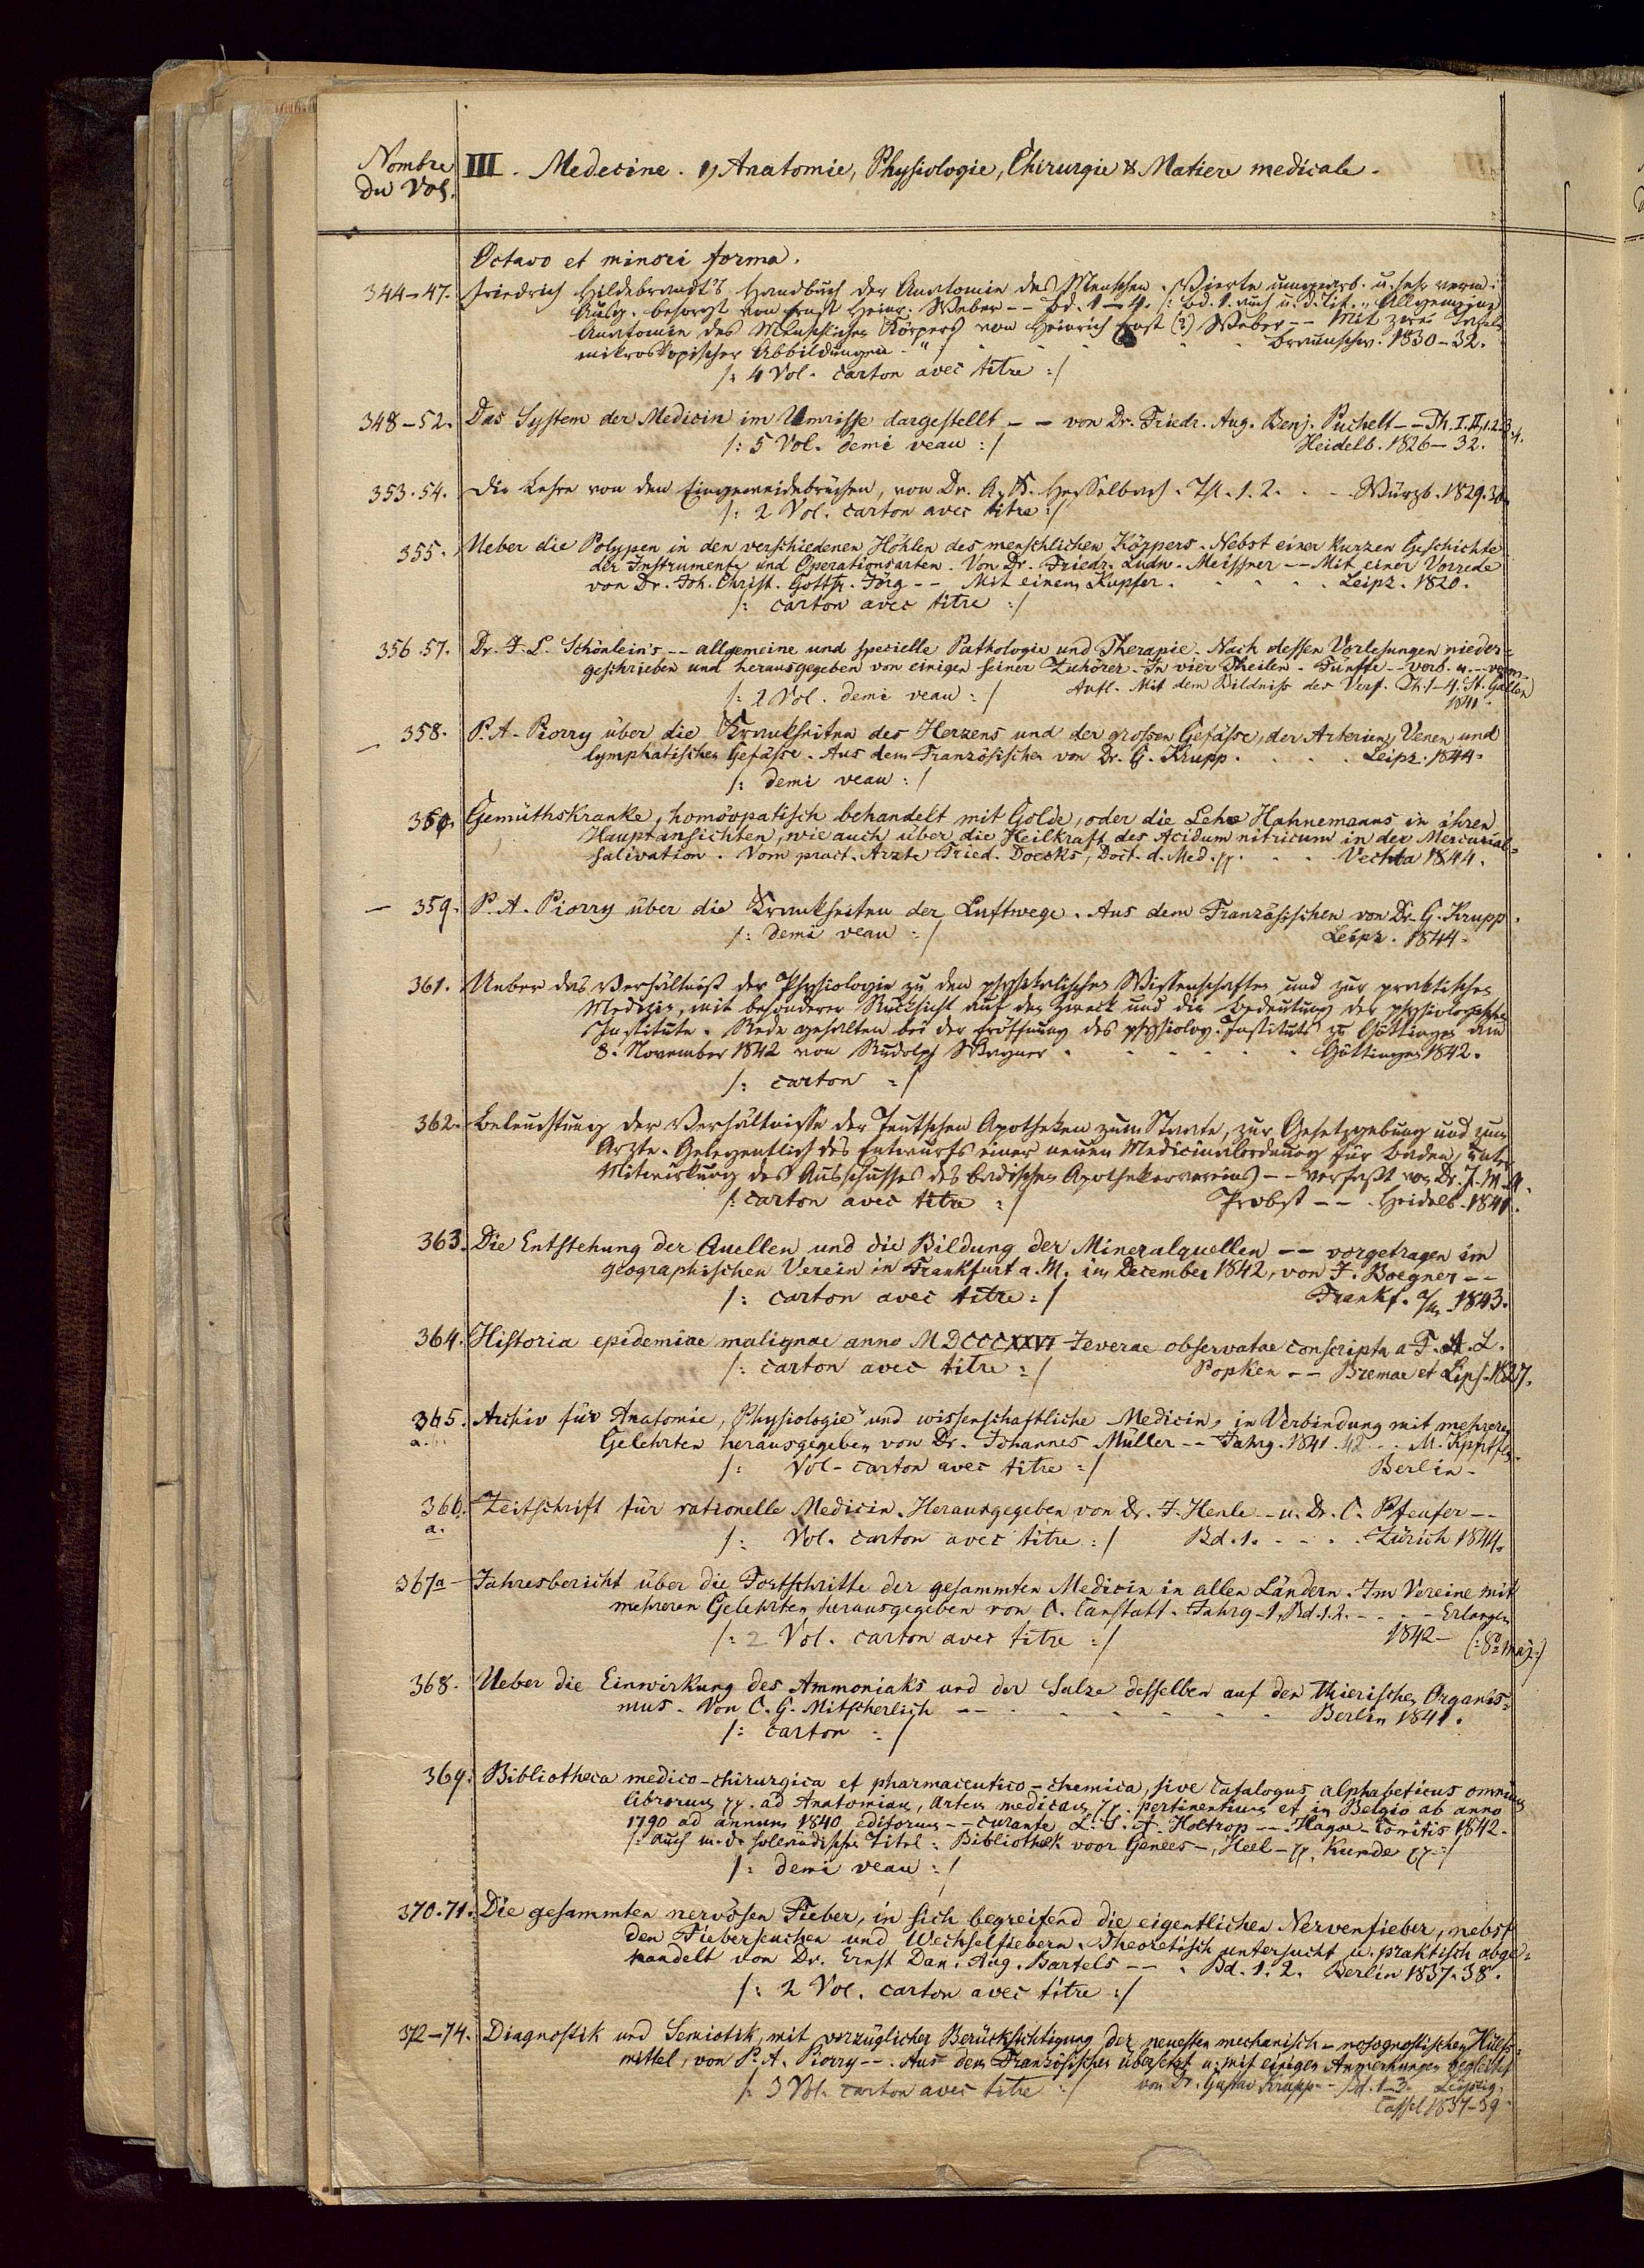 Nombre
du Vol.
III. Medecine. 1) Anatomie, Physiologie, Chirurgie & Matiere medicale.
Octavo et minori forma.
344–47. Friedrich Hildebrandt's Handbuch der Anatomie des Menschen. Vierte umgearb. u. sehr verm.
Ausg. besorgt von Ernst Heinr. Weber -- Bd. 1–4. /: Bd. 1. auch u. d. Tit. „Allgemeine
Anatomie des menschlichen Körpers von Heinrich Ernst (?) Weber -- Mit zwei Tafeln
mikroskopischer Abbildungen." / Braunschw. 1830–32.
/: 4 Vol. carton avec titre :/
348–52. Das System der Medicin im Umrisse dargestellt -- von Dr. Friedr. Aug. Benj. Puchelt -- Th. I. II, 1. 2. 3. 4.
/: 5 Vol. demi veau :/ Heidelb. 1826–32.
353. 54. Die Lehre von den Eingeweidebrüchen, von Dr. A. K. Hesselbach. Th. 1. 2. . . . Würzb. 1829. 30.
/: 2 Vol. carton avec titre :/
355. Ueber die Polypen in den verschiedenen Höhlen des menschlichen Körpers. Nebst einer kurzen Geschichte
der Instrumente und Operationsarten. Von Dr. Friedr. Ludw. Meissner -- Mit einer Vorrede
von Dr. Joh. Christ. Gottfr. Jörg -- Mit einem Kupfer. . . . . Leipz. 1820.
/: carton avec titre :/
356. 57. Dr. J. L. Schönlein's -- allgemeine und specielle Pathologie und Therapie. Nach dessen Vorlesungen nieder=
geschrieben und herausgegeben von einigen seiner Zuhörer. In vier Theilen. Fünfte -- verb. u. -- verm.
/: 2 Vol. demi veau :/ Aufl. Mit dem Bildniss des Verf. Th. 1–4. St. Gallen
1841.
– 358. P. A. Piorry über die Krankheiten des Herzens und der grossen Gefässe, der Arterien, Venen und
lymphatischen Gefässe. Aus dem Französischen von Dr. G. Krupp. . . . . Leipz. 1844.
/: demi veau :/
360. Gemüthskranke, homöopatisch behandelt mit Golde, oder die Lehre Hahnemanns in ihren
Hauptansichten, wie auch über die Heilkraft des Acidum nitricum in der Mercurial=
salivation. Vom pract. Arzte Fried. Doecks, Doct. d. Med. . . . Vechta 1844.
– 359. P. A. Piorry über die Krankheiten der Luftwege. Aus dem Französischen von Dr. G. Krupp.
/: demi veau :/ Leipz. 1844.
361. Ueber das Verhältniß der Physiologie zu den physikalischen Wissenschaften und zur praktischen
Medizin, mit besonderer Rücksicht auf den Zweck und die Bedeutung der physiologischen
Institute. Rede gehalten bei der Eröffnung des physiolog. Instituts zu Göttingen am
8. November 1842 von Rudolph Wagner . . . . . . Göttingen 1842.
/: carton :/
362. Beleuchtung der Verhältnisse der Teutschen Apotheken zum Staate, zur Gesetzgebung und zum
Arzte. Gelegentlich des Entwurfs einer neuen Medicinalordnung für Baden, unter
Mitwirkung des Ausschusses des badischen Apothekervereins -- verfaßt von Dr. J. M. A.
/: carton avec titre :/ Probst -- . Heidelb. 1841.
363. Die Entstehung der Quellen und die Bildung der Mineralquellen -- vorgetragen im
geographischen Verein in Frankfurt a. M. im December 1842, von J. Boegner --
/: carton avec titre :/ Frankf. a/m 1843.
364. Historia epidemiae malignae anno MDCCCXXVI Jeverae observatae conscripta a F. A. L.
/: carton avec titre :/ Popken -- Bremae et Lips. 1827.
365. Archiv für Anatomie, Physiologie und wissenschaftliche Medicin, in Verbindung mit mehreren
a. Gelehrten herausgegeben von Dr. Johannes Müller -- Jahrg. 1841. 42 . . . M. Kpftfn.
/: Vol. carton avec titre :/ Berlin.
366. Zeitschrift für rationelle Medicin. Herausgegeben von Dr. J. Henle -- u. Dr. C. Pfeufer --
a. /: Vol. carton avec titre :/ Bd. 1. . . . . Zürich 1844.
367a Jahresbericht über die Fortschritte der gesammten Medicin in allen Ländern. Im Vereine mit
mehreren Gelehrten herausgegeben von C. Canstatt. Jahrg. 1, Bd. 1. 2. . . . . Erlangen
/: 2 Vol. carton avec titre :/ 1842– (: 8º maj. :)
368. Ueber die Einwirkung des Ammoniaks und der Salze desselben auf den thierischen Organis=
mus. Von C. G. Mitscherlich -- . . . . . . Berlin 1841.
/: carton :/
369. Bibliotheca medico-chirurgica et pharmaceutico-chemica, sive Catalogus alphabeticus omnium
librorum pp. ad Anatomiam, artem medicam pp. pertinentium et in Belgio ab anno
1790 ad annum 1840 editorum -- curante L. S. A. Holtrop -- Hagae-Comitis 1842.
/: Auch u. d. holländische Titel: Bibliotheek voor Genees-, Heel- pp. Kunde pp. :/
/: demi veau :/
370. 71. Die gesammten nervösen Fieber, in sich begreifend die eigentlichen Nervenfieber, nebst
den Fieberseuchen und Wechselfiebern. Theoretisch untersucht u. praktisch abge=
handelt von Dr. Ernst Dan. Aug. Bartels -- . Bd. 1. 2. Berlin 1837. 38.
/: 2 Vol. carton avec titre :/
372–74. Diagnostik und Semiotik, mit vorzüglicher Berücksichtigung der neuesten mechanisch-nosognostischen Hülfs=
mittel, von P. A. Piorry --. Aus dem Französischen übersetzt u. mit einigen Anmerkungen begleitet
/: 3 Vol. carton avec titre :/ von Dr. Gustav Krupp -- Bd. 1–3. Leipzig,
Cassel 1837–39